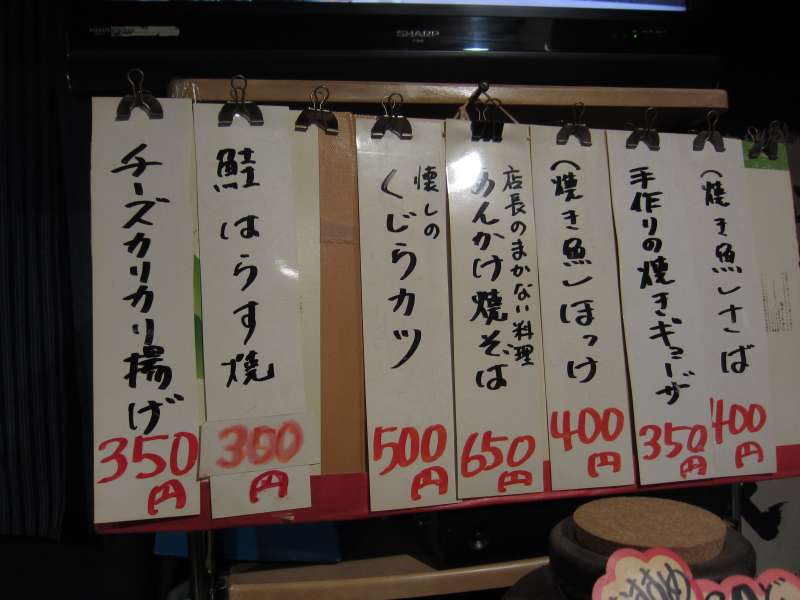 SHARP
(焼き魚)さば
400円
手作りの焼きギョーザ
350円
(焼き魚)ほっけ
400円
店長のまかない料理
あんかけ焼そば
650円
懐しの
くじらカツ
500円
鮭はらす焼
300円
チーズカリカリ揚げ
350円